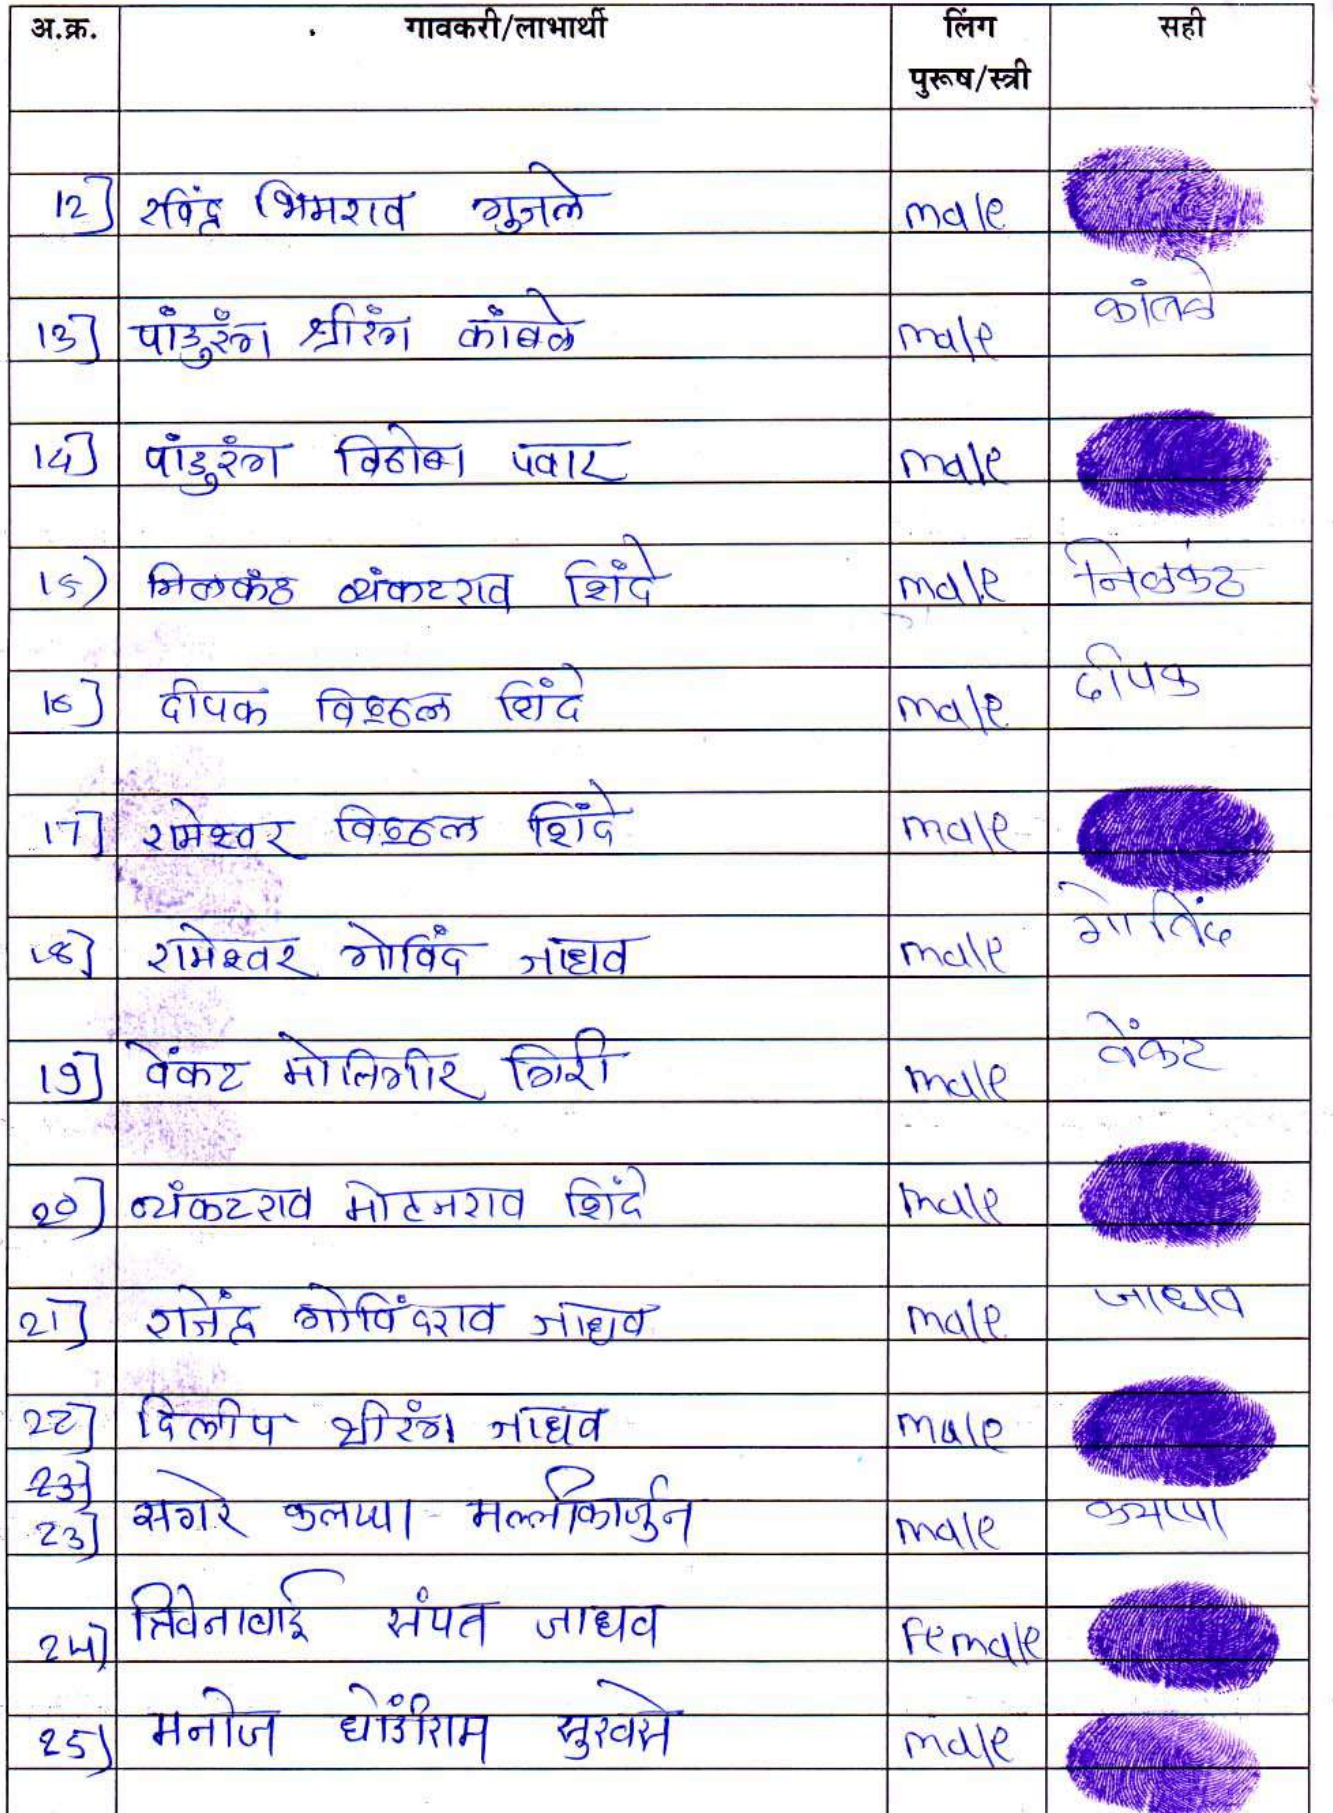 अ.क्र. गावकरी/लाभार्थी लिंग सही
पुरूष/स्त्री
12] रविंद्र भिमराव गुजले male
13] पांडुरंग श्रीरंग कांबळे male कांबळे
14] पांडुरंग विठोबा पवार male
15) निलकंठ व्यंकटराव शिंदे male निळकंठ
16] दीपक विठ्ठल शिंदे male दीपक
17] रामेश्वर विठ्ठल शिंदे male
18] रामेश्वर गोविंद जाधव male गोविंद
19] वेंकट मोतिगीर गिरी male वेंकट
20] व्यंकटराव मोहनराव शिंदे male
21] राजेंद्र गोविंदराव जाधव male जाधव
22] दिलीप श्रीरंग जाधव male
23]
23] सगरे कलप्पा मल्लीकार्जुन male
24) त्रिवेनाबाई संपत जाधव Female
25) मनोज धोंडीराम सुरवसे male